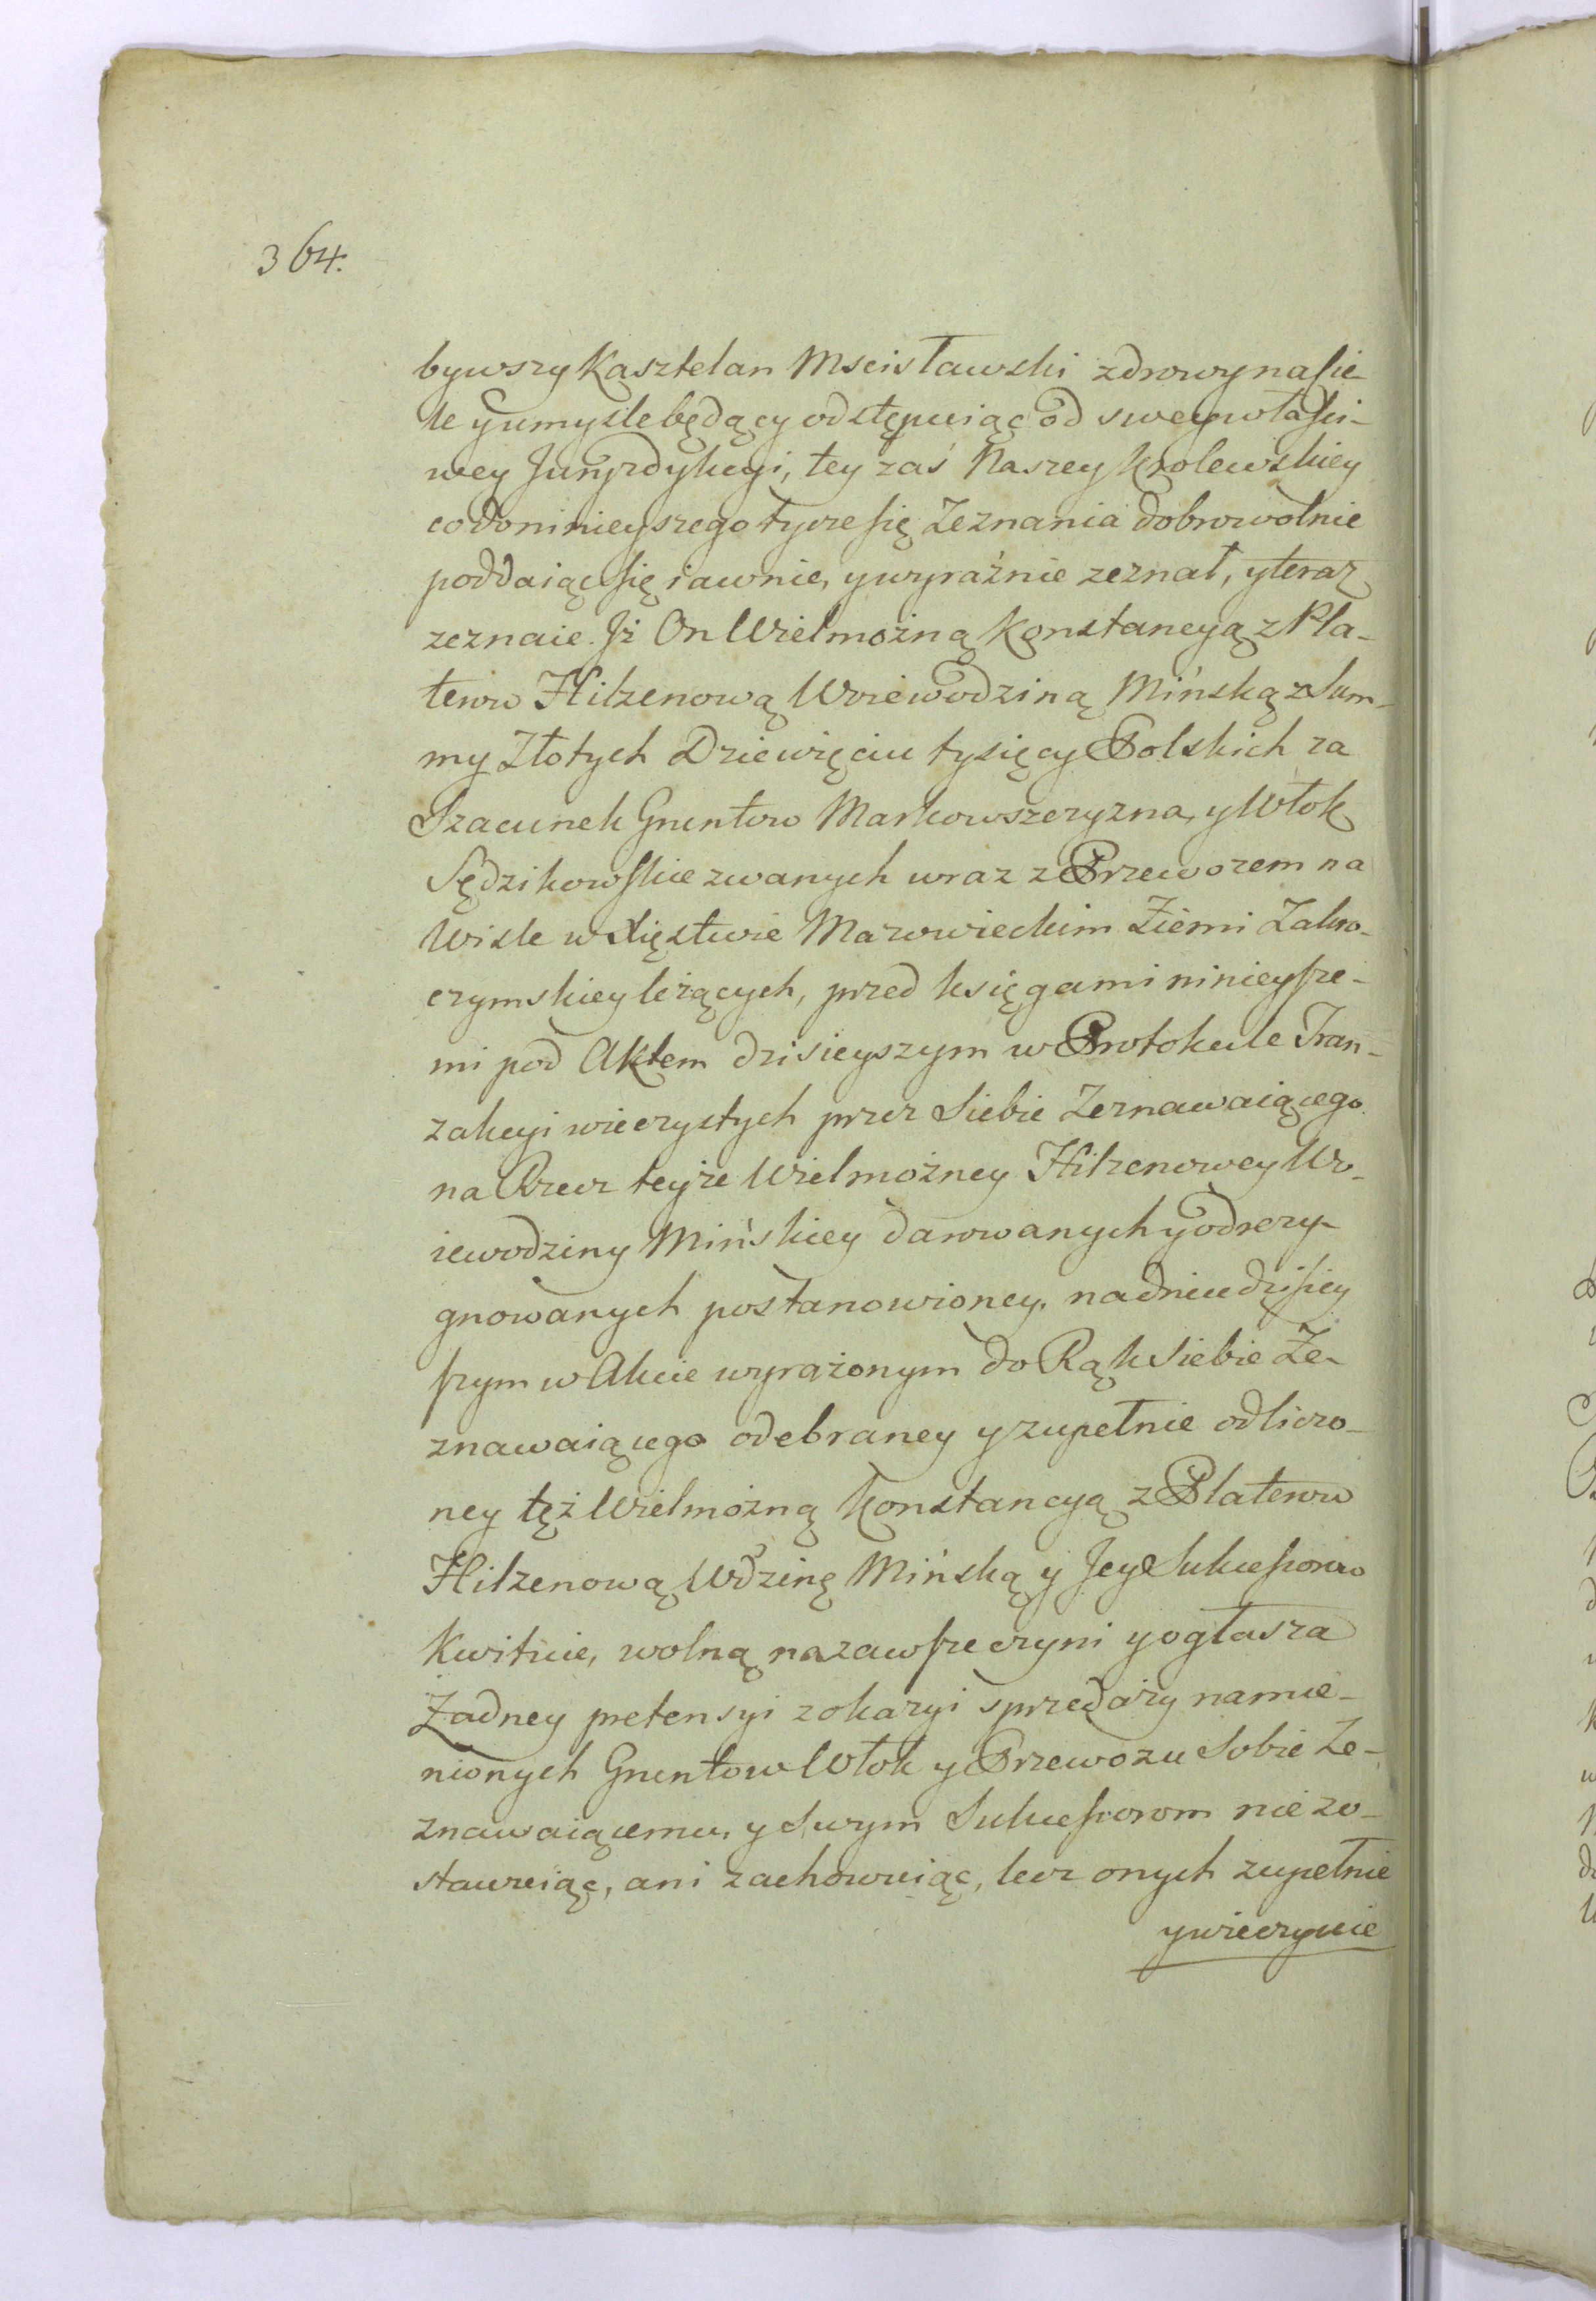 364.
bywszy Kasztelan Mscisławski zdrowy na Cie-
le y umyśle będący odstępuiąc od swey właści-
wey Juryzdykcyi, tey zaś Naszey Krolewskiey
co do ninieyszego tycze się Zeznania dobrowolnie
poddaiąc się iawnie, y wyraźnie zeznał, y teraz
zeznaie. Jż On Wielmożną Konstancyą z Pla-
terow Hilzenową Woiewodziną Mińską z Sum-
my Złotych Dziewięciu tysięcy Polskich za
Szacunek Gruntow Markowszczyzna, y Włok
Sędzikowskie zwanych wraz z Przewozem na
Wisle w Xięstwie Mazowieckim Ziemi Zakro-
czymskiey leżących, przed księgami ninieysze-
mi pod Aktem dzisieyszym w Protokule Tran-
zakcyi wieczystych przez Siebie Zeznawaiącego
na Rzecz teyże Wielmożney Hilzenowey Wo-
iewodziny Mińskiey darowanych y odrezy-
gnowanych postanowioney, na dniu dzisiey
szym w Akcie wyrażonym do Rąk Siebie Ze-
znawaiącego odebraney y zupełnie odliczo-
ney tęż Wielmożną Konstancyą z Platerow
Hilzenową Wdzinę Mińską y Jey Sukcessorow
Kwituie, wolną na zawsze czyni y ogłasza
Żadney pretensyi z okazyi sprzedaży namie-
nionych Gruntow Włok y Przewozu Sobie Ze-
znawaiącemu, y Swym Sukcessorom nie zo-
stawuiąc, ani zachowuiąc, lecz onych zupełnie
y wieczyście